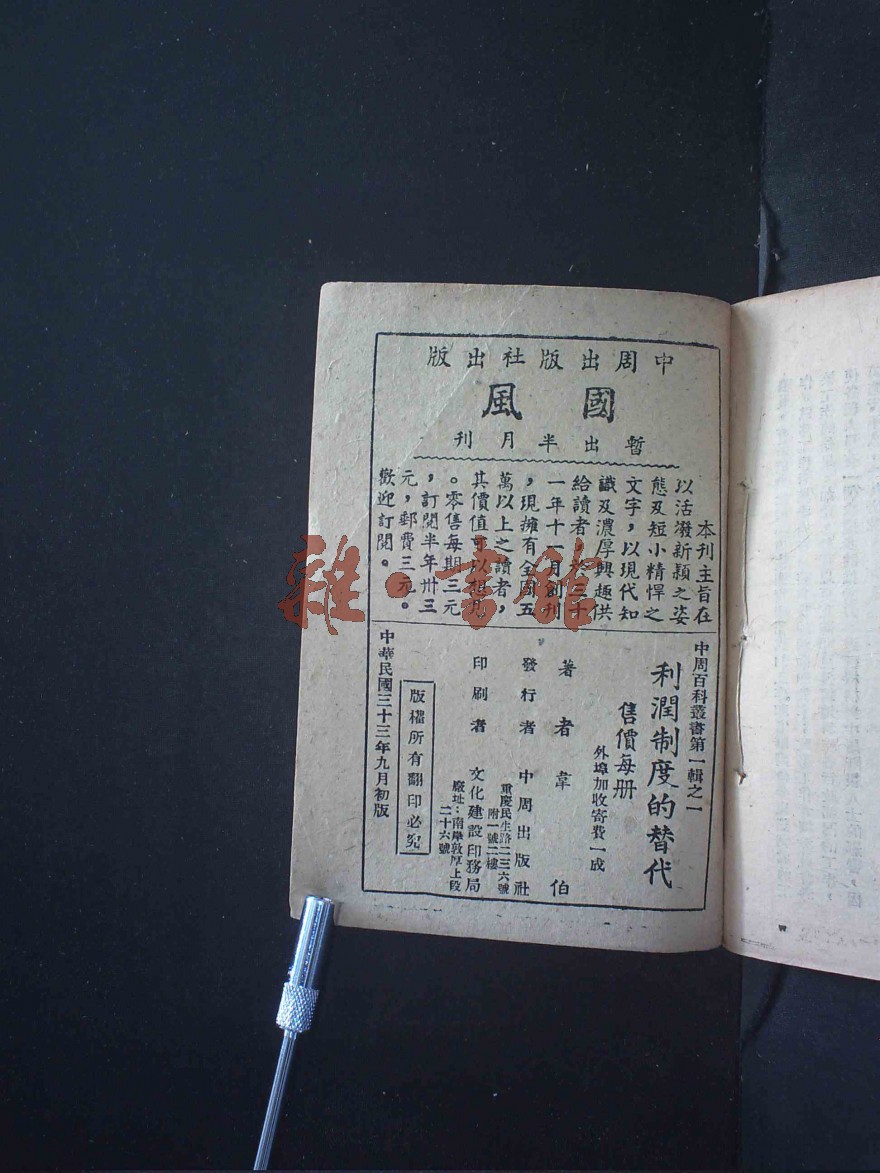 中周出版社出版
國風
暫出半月刊
本刊主旨在
以活潑新穎之姿
態及短小精悍之
文字，以現代知
識及濃厚興趣供
給讀者，於三十
一年十月創刊
，現擁有全國五
萬以上之讀者，
其價值可以想見
。零售每期三元
，訂閱半年卅三
元，郵費三元。
歡迎訂閱。
中周百科叢書第一輯之一
利潤制度的替代
售價每册
外埠加收寄費一成
著者 韋伯
發行者 中周出版社
重慶民生路二三六號
附一號二樓
印刷者 文化建設印務局
廠址：南岸敦厚上段
二十六號
版權所有翻印必究
中華民國三十三年九月初版
雜·書館